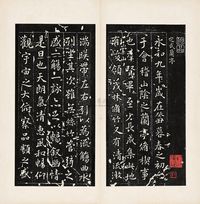 定武蘭亭
永和九年歲在癸丑暮春之初會
于會稽山陰之蘭亭脩稧事
也群賢畢至少長咸集此地
有崇山峻領茂林脩竹又有清流激
湍暎帶左右引以為流觴曲水
列坐其次雖無絲竹管弦之
盛一觴一詠亦足以暢敘幽情
是日也天朗氣清惠風和暢仰
觀宇宙之大俯察品類之盛